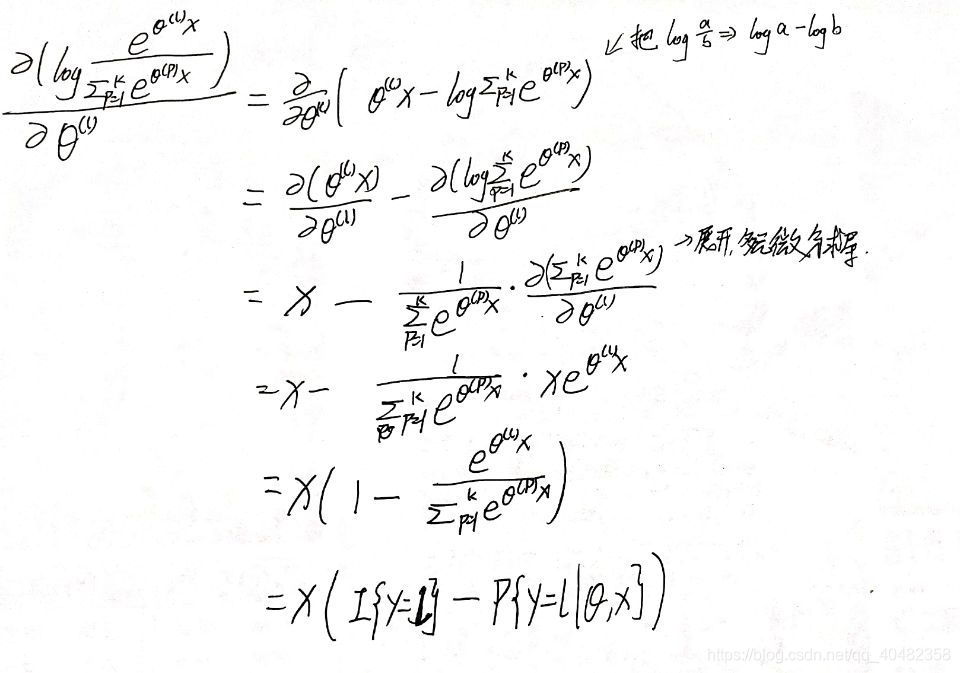 ∂(log e^{θ^{(l)}x} / Σ_{p=1}^{k} e^{θ^{(p)}x}) / ∂θ^{(l)} = ∂/∂θ^{(l)} ( θ^{(l)}x − log Σ_{p=1}^{k} e^{θ^{(p)}x} ) ↙ 把 log a/b ⇒ log a − log b
= ∂(θ^{(l)}x) / ∂θ^{(l)} − ∂(log Σ_{p=1}^{k} e^{θ^{(p)}x}) / ∂θ^{(l)}
= x − 1 / Σ_{p=1}^{k} e^{θ^{(p)}x} · ∂(Σ_{p=1}^{k} e^{θ^{(p)}x}) / ∂θ^{(l)} → 展开, 微分求导.
= x − 1 / Σ_{p=1}^{k} e^{θ^{(p)}x} · x e^{θ^{(l)}x}
= x ( 1 − e^{θ^{(l)}x} / Σ_{p=1}^{k} e^{θ^{(p)}x} )
= x ( I{y=l} − P{y=l|θ,x} )
https://blog.csdn.net/qq_40482358